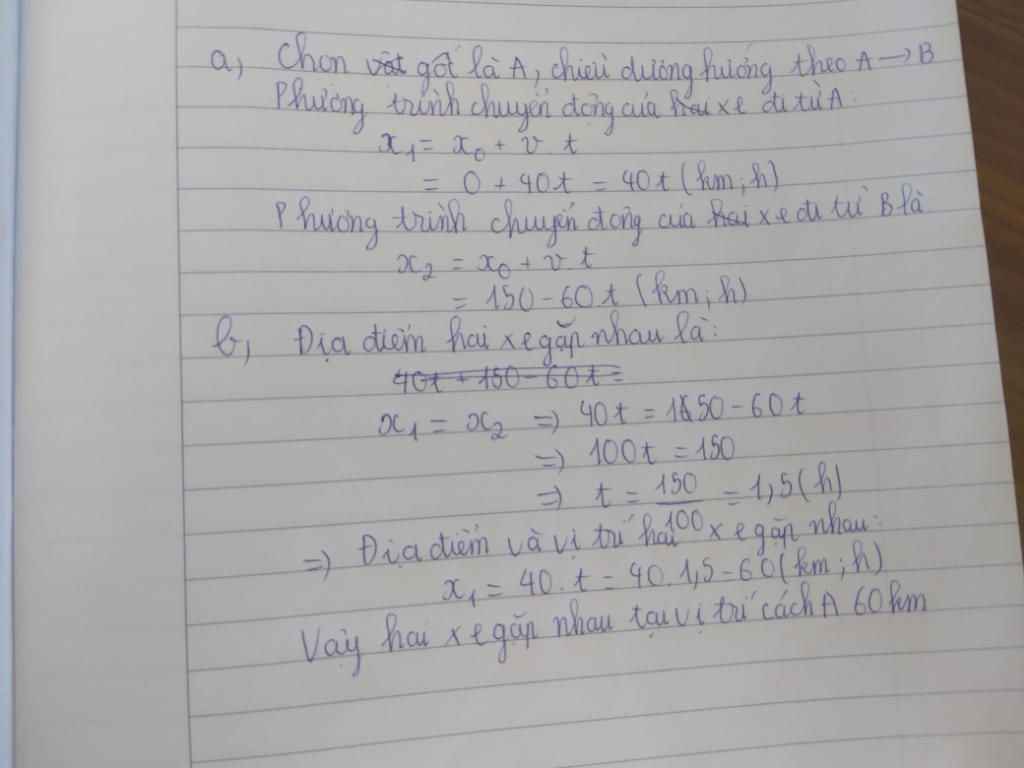 a, Chọn vật gốt là A, chiều dương hướng theo A → B
Phương trình chuyển động của hai xe đi từ A:
x₁ = x₀ + v. t
= 0 + 40t = 40t (km; h)
Phương trình chuyển động của hai xe đi từ B là
x₂ = x₀ + v.t
= 150 - 60t (km; h)
b, Địa điểm hai xe gặp nhau là:
40t + 150 - 60t =
x₁ = x₂ => 40t = 150 - 60t
=> 100t = 150
=> t = 150/100 = 1,5 (h)
=> Địa điểm và vị trí hai xe gặp nhau:
x₁ = 40. t = 40. 1,5 = 60 (km; h)
Vậy hai xe gặp nhau tại vị trí cách A 60km